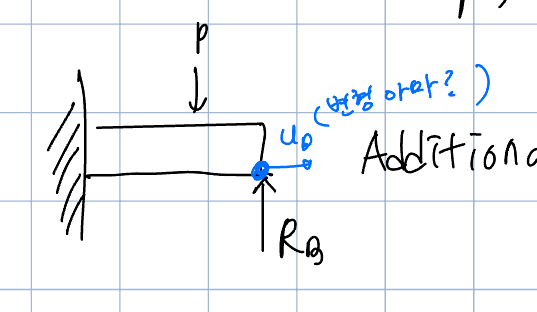 P
u_B (변형 아마?)
Additiona
R_B